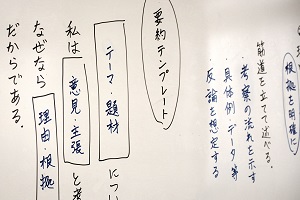 根拠を明確に
筋道を立てて述べる。
・考察の流れを示す
・具体例・データ等
・反論を想定する
要約テンプレート
テーマ・題材につい
私は意見・主張と考
なぜなら理由・根拠
だからである.